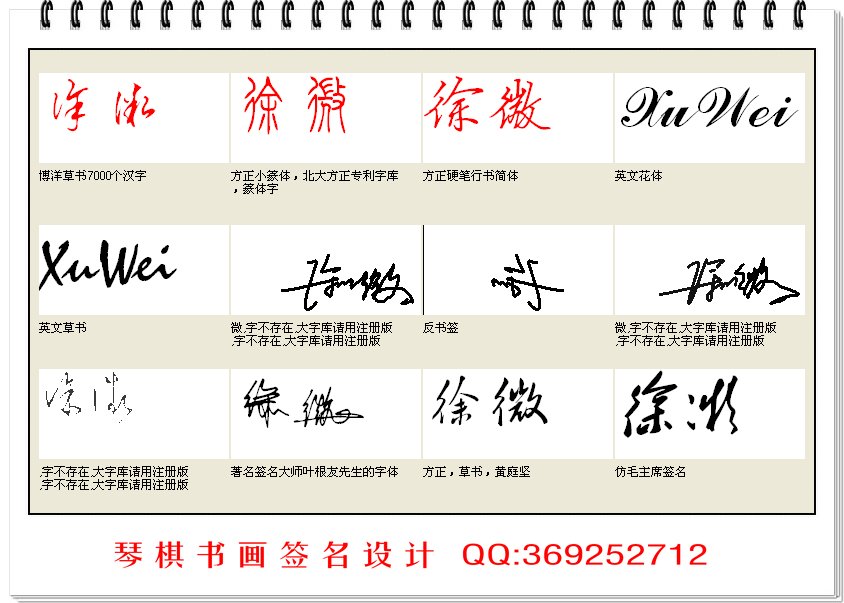 徐 微
徐 微
徐 微
XuWei
博洋草书7000个汉字
方正小篆体，北大方正专利字库
，篆体字
方正硬笔行书简体
英文花体
XuWei
徐微
徐微
英文草书
微,字不存在,大字库请用注册版
,字不存在,大字库请用注册版
反书签
微,字不存在,大字库请用注册版
,字不存在,大字库请用注册版
徐 微
徐 微
徐 微
徐 微
,字不存在,大字库请用注册版
,字不存在,大字库请用注册版
著名签名大师叶根友先生的字体
方正，草书，黄庭坚
仿毛主席签名
琴棋书画签名设计 QQ:369252712